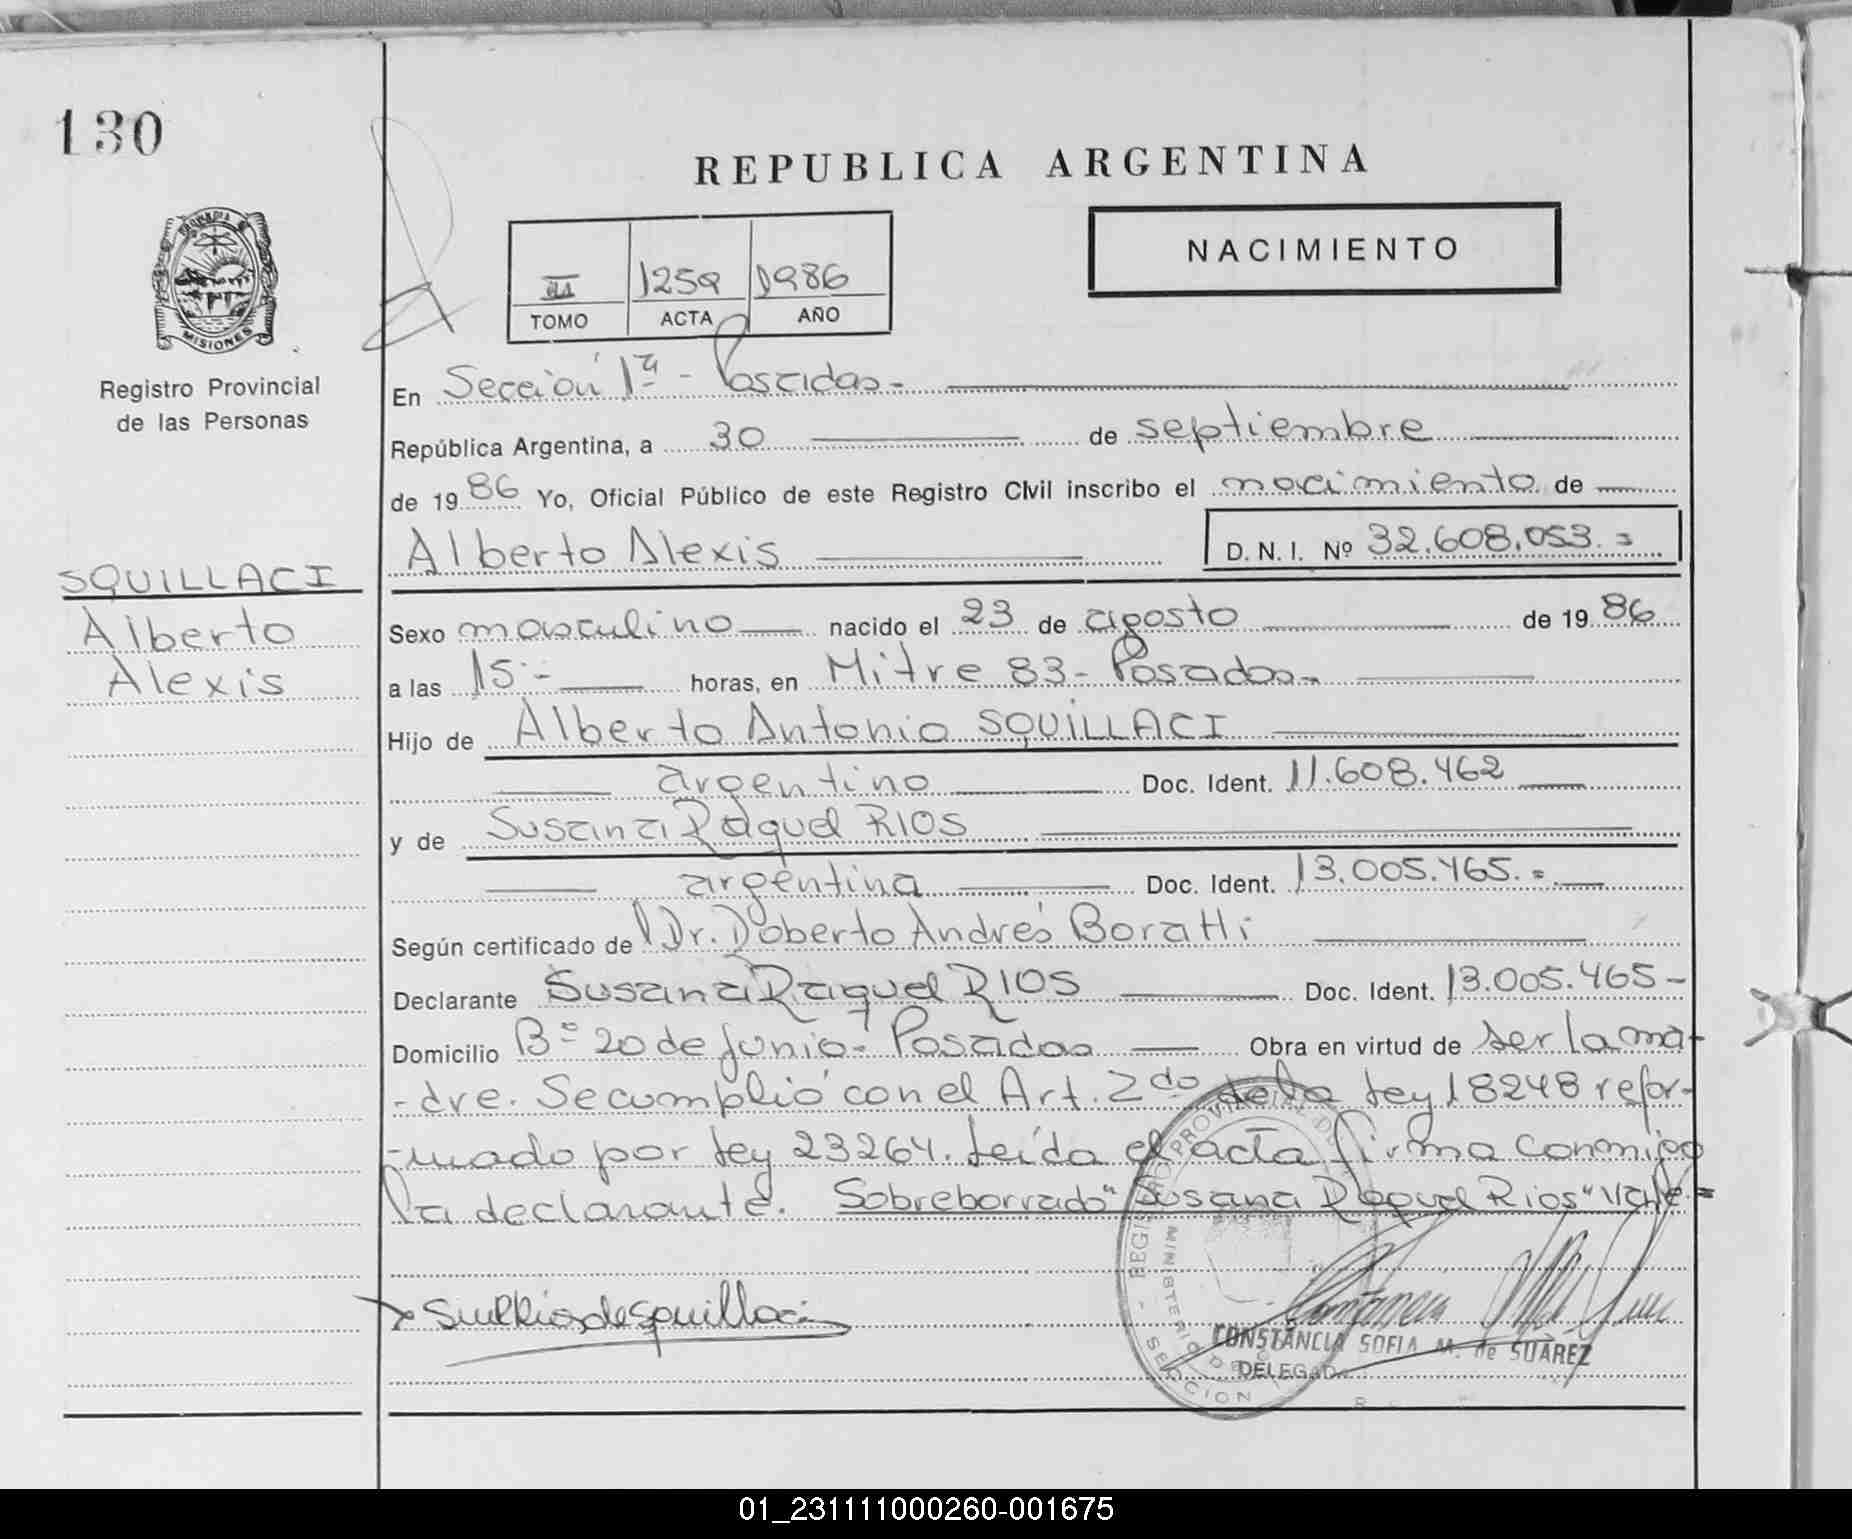 130
REPUBLICA ARGENTINA
NACIMIENTO
III 1259 1986
TOMO ACTA AÑO
MISIONES
Registro Provincial
de las Personas
En Sección 1ra - Posadas -
República Argentina, a 30 de septiembre
de 1986 Yo, Oficial Público de este Registro Civil inscribo el nacimiento de
Alberto Alexis D. N. I. Nº 32.608.053. =
SQUILLACI
Alberto
Alexis
Sexo masculino nacido el 23 de agosto de 1986
a las 15 - horas, en Mitre 83 - Posadas -
Hijo de Alberto Antonio SQUILLACI
argentino Doc. Ident. 11.608.462
y de Susana Raquel RIOS
argentina Doc. Ident. 13.005.465. =
Según certificado de Dr. Roberto Andrés Boratti
Declarante Susana Raquel RIOS Doc. Ident. 13.005.465 -
Domicilio Bº 20 de Junio - Posadas Obra en virtud de ser la ma-
-dre. Se cumplió con el Art. 2do de la Ley 18248 refor-
-mado por Ley 23264. Leída el acta firma conmigo
la declarante. Sobreborrado "Susana Raquel Rios" Vale. =
REGISTRO PROVINCIAL DE
MINISTERIO DE
SECCION
CONSTANCIA SOFIA M. de SUAREZ
DELEGADA
01_231111000260-001675